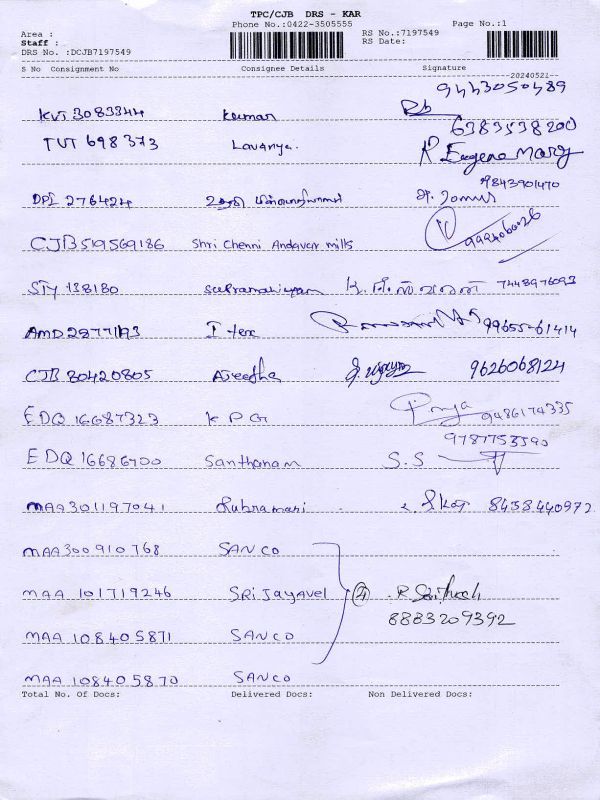 TPC/CJB DRS - KAR
Phone No.:0422-3505555 Page No.:1
Area : RS No.:7197549
Staff : RS Date:
DRS No. :DCJB7197549
S No Consignment No Consignee Details Signature
20240521
9443050489
KVT 3083344 Kumar
6383538200
TUT 698373 Lavanya. R Eugene Mary
9843901470
DPI 276424
CJB 519569186 Shri Chenni Andavar mills
STY 138180 Subramaniyam 7448976093
AMD 2877193 I tex 99655-61414
CJB 80420805 Ajeetha 9626068124
EDQ 16687323 K P G Priya 9486174335
9787753590
EDQ 16686700 Santhanam S.S
MAA301197041 Subramani 8458440972
MAA300910768 SANCO
MAA 101719246 SRI JAYAVEL 4 R
8883209392
MAA 108405871 SANCO
MAA 108405870 SANCO
Total No. Of Docs: Delivered Docs: Non Delivered Docs: